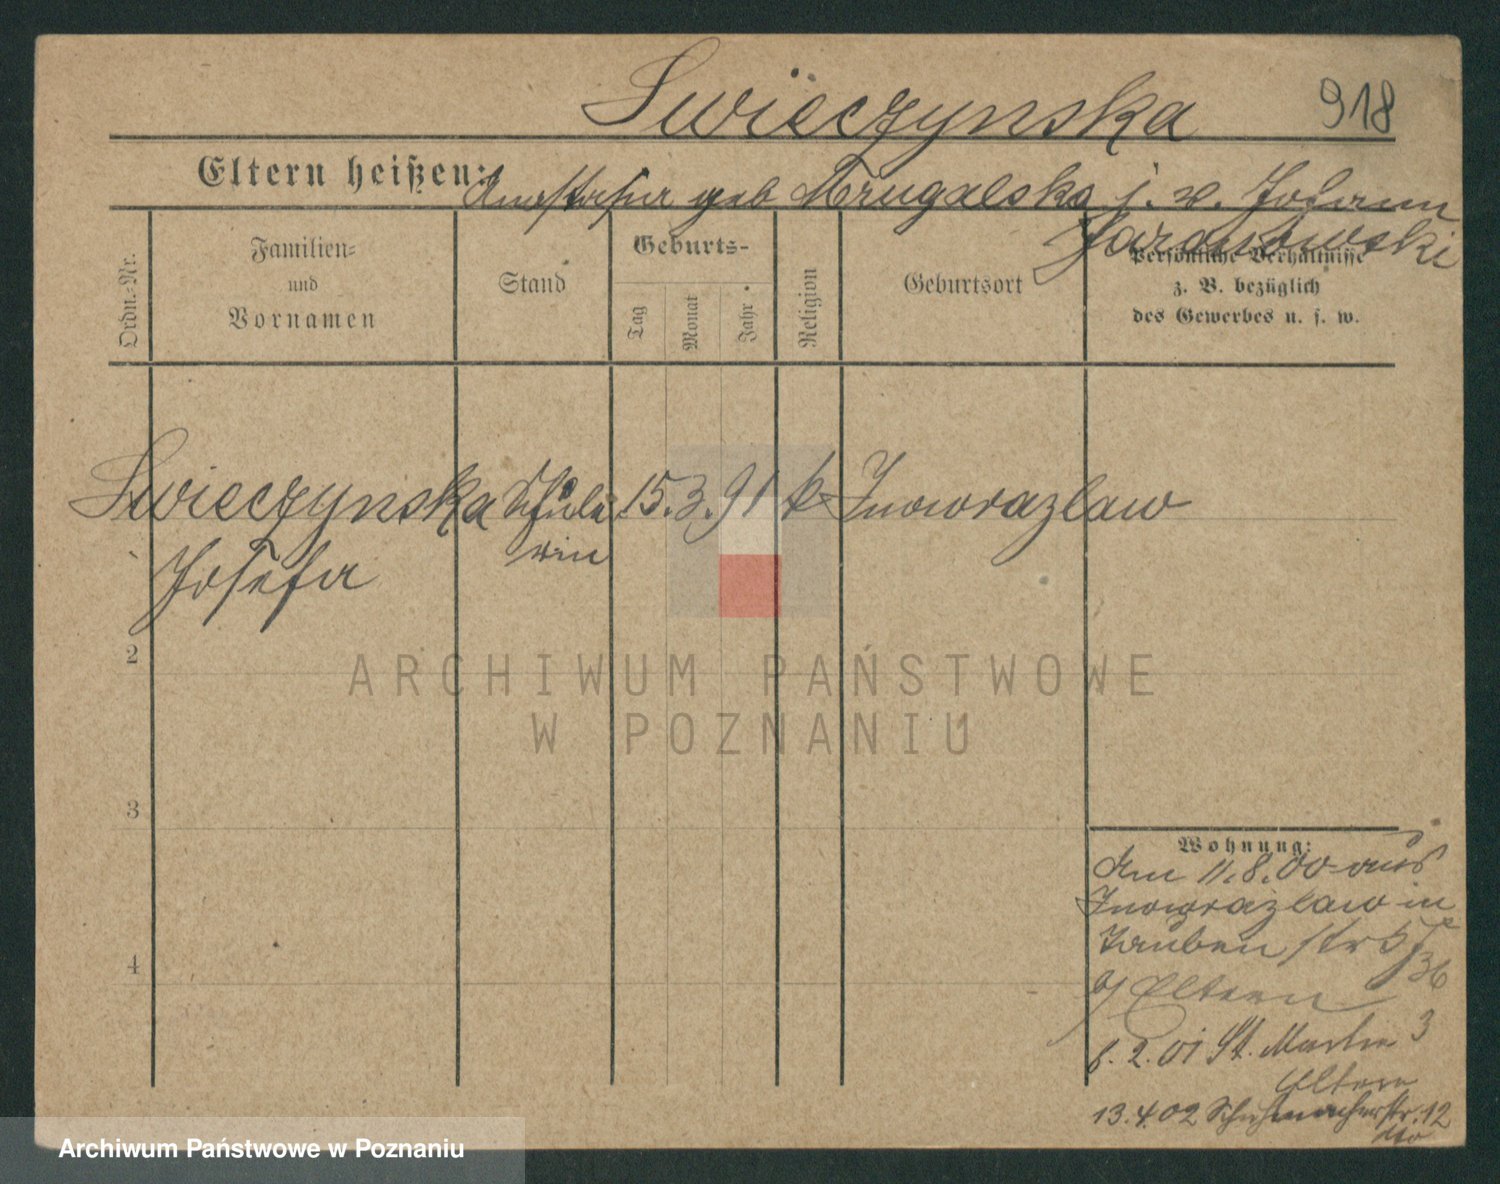 Swieczynska
918
Eltern heißen: Anastasia geb Mrugalska j. v. Johann
Jaronowski
Ordn.-Nr.
Familien-
und
Vornamen
Stand
Geburts-
Tag
Monat
Jahr
Religion
Geburtsort
Persönliche Verhältnisse
z. B. bezüglich
des Gewerbes u. s. w.
Swieczynska Schüle 15. 3. 91 k Inowrazlaw
rin
Josefa
2
ARCHIWUM PAŃSTWOWE
W POZNANIU
3
Wohnung:
Am 11.8.00 aus
Inowrazlaw in
Tauben str 5
36
Eltern
6. 2. 01 St. Martin 3
Eltern
13.4.02 Schuhmacherstr. 12
4
Archiwum Państwowe w Poznaniu